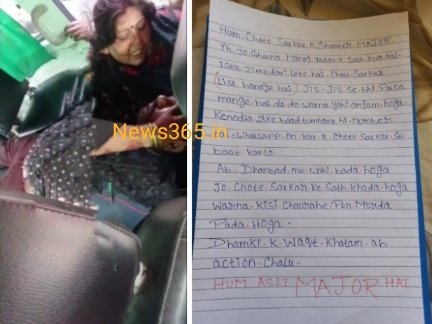 Hum Chote Sarkar K Shooter MAJOR
Yh Jo Ghatna Manoj Yadav K Sath hua hai
iska zimedari lete hai Chote Sarkar
(List banaye hai) Jis-Jis se bhi Paisa
mange hai de do warna yahi anjam hoga
Kenodia iske bad tumhara hi number
Whatsapp on kar K Chote Sarkar Se
baat kar lo
Ab Dhanbad me wahi bada hoga
Jo Chote Sarkar ke Sath khada hoga
Warna Kisi Chaurahe Per Murda
Pada Hoga.
Dhamki K Waqt Khatam ab
action Chalu.
HUM ASLI MAJOR HAI.
News365.in